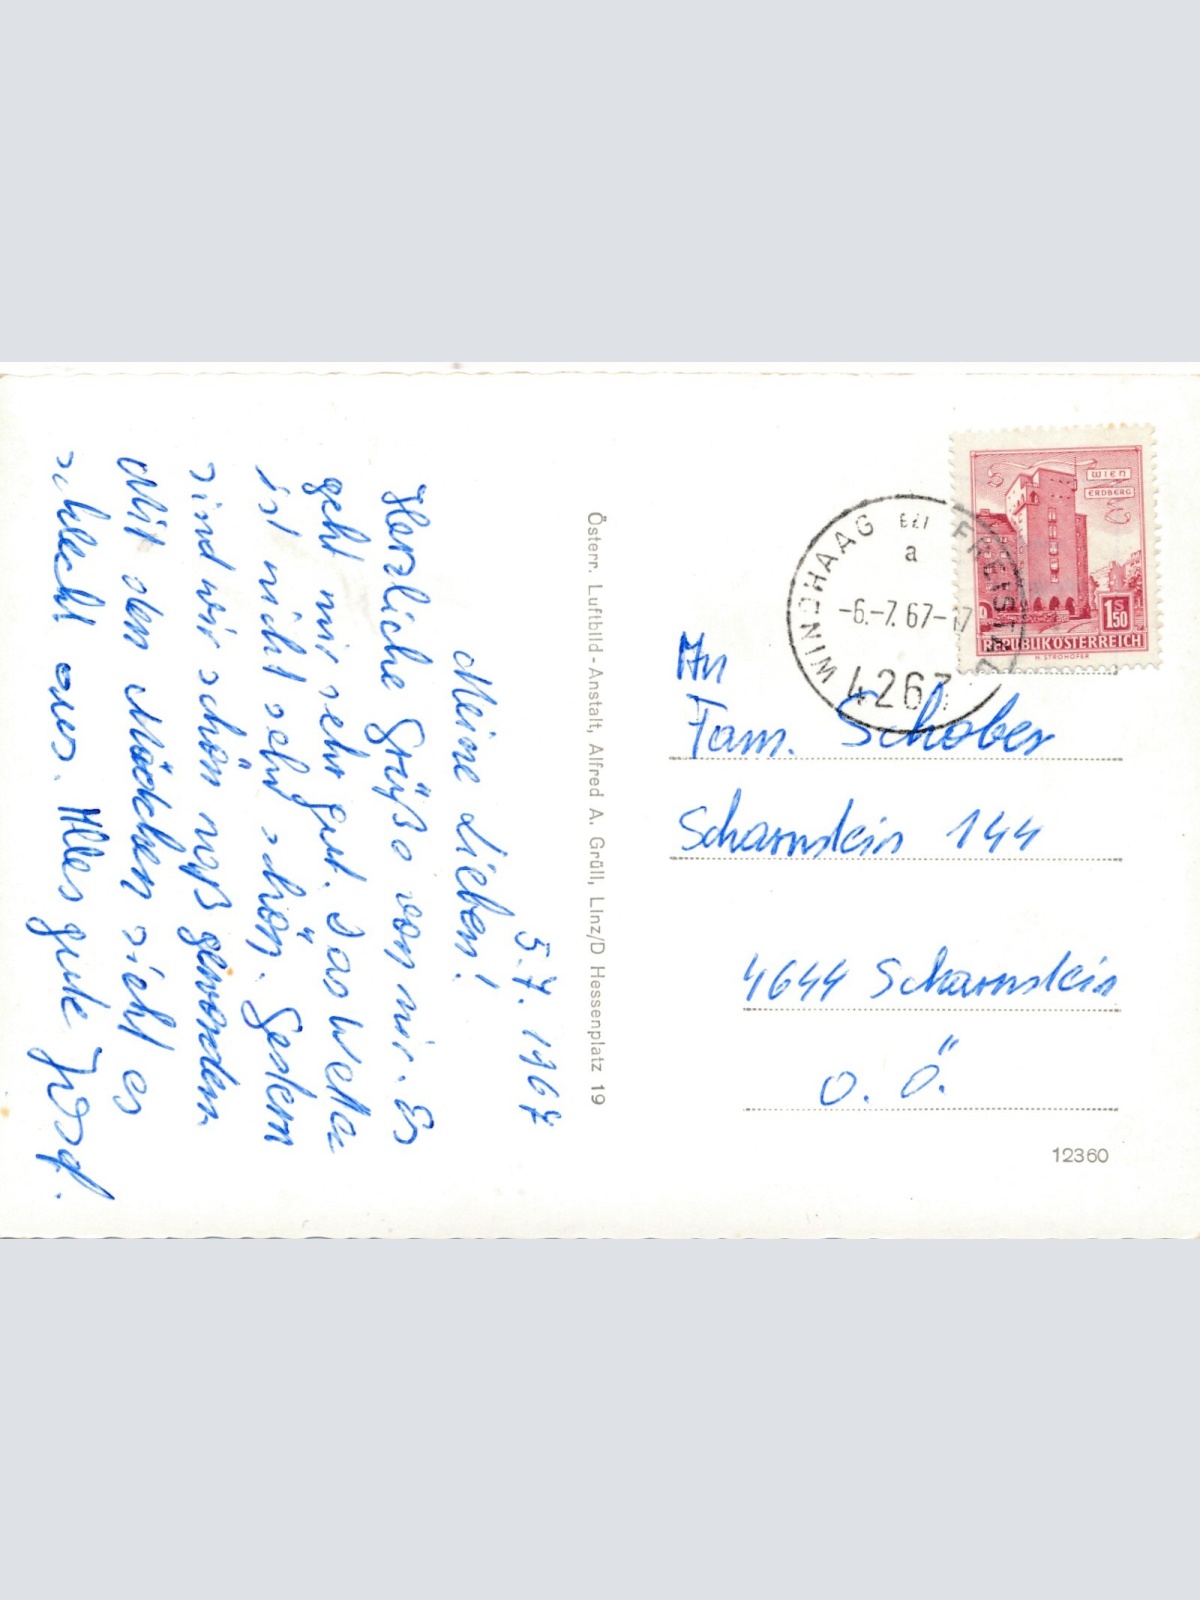 5.7.1967
Meine Lieben!
Herzliche Grüße von mir. Es
geht mir sehr gut. Das Wetter
ist nicht sehr schön. Gestern
sind wir schön naß geworden.
Mit den Mädchen sieht es
schlecht aus. Alles gute Josef.
Österr. Luftbild-Anstalt, Alfred A. Grüll, Linz/D Hessenplatz 19
WIEN
ERDBERG
S 1 50
REPUBLIK ÖSTERREICH
H. STROHOFER
WINDHAAG BEI FREISTADT
a
-6.-7.67-17
4263
An
Fam. Schober
Scharnstein 144
4644 Scharnstein
O.Ö.
12360